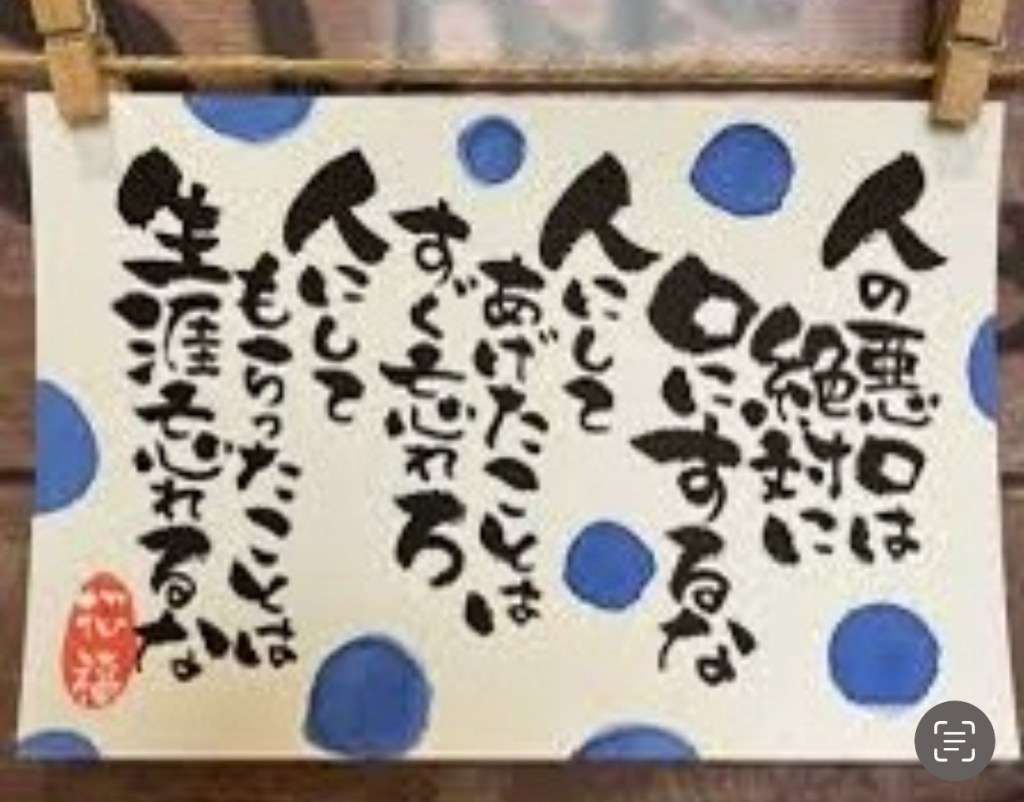 人の悪口は
絶対に
口にするな
人にして
あげたことは
すぐ忘れろ
人にして
もらったことは
生涯忘れるな